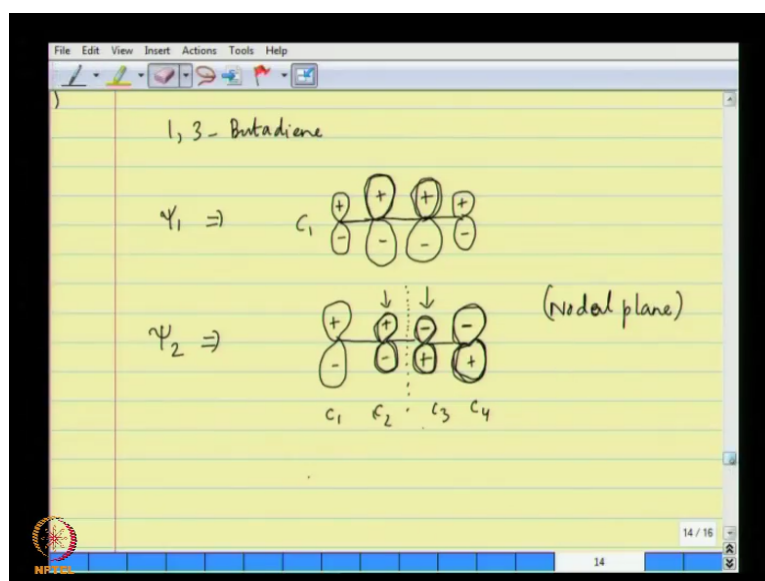 File Edit View Insert Actions Tools Help
)
1, 3 - Butadiene
Ψ₁ ⇒ C₁ + + + +
- - - -
↓ ↓
(Nodal plane)
Ψ₂ ⇒ + + - -
- - + +
C₁ C₂ C₃ C₄
14 / 16
14
NPTEL